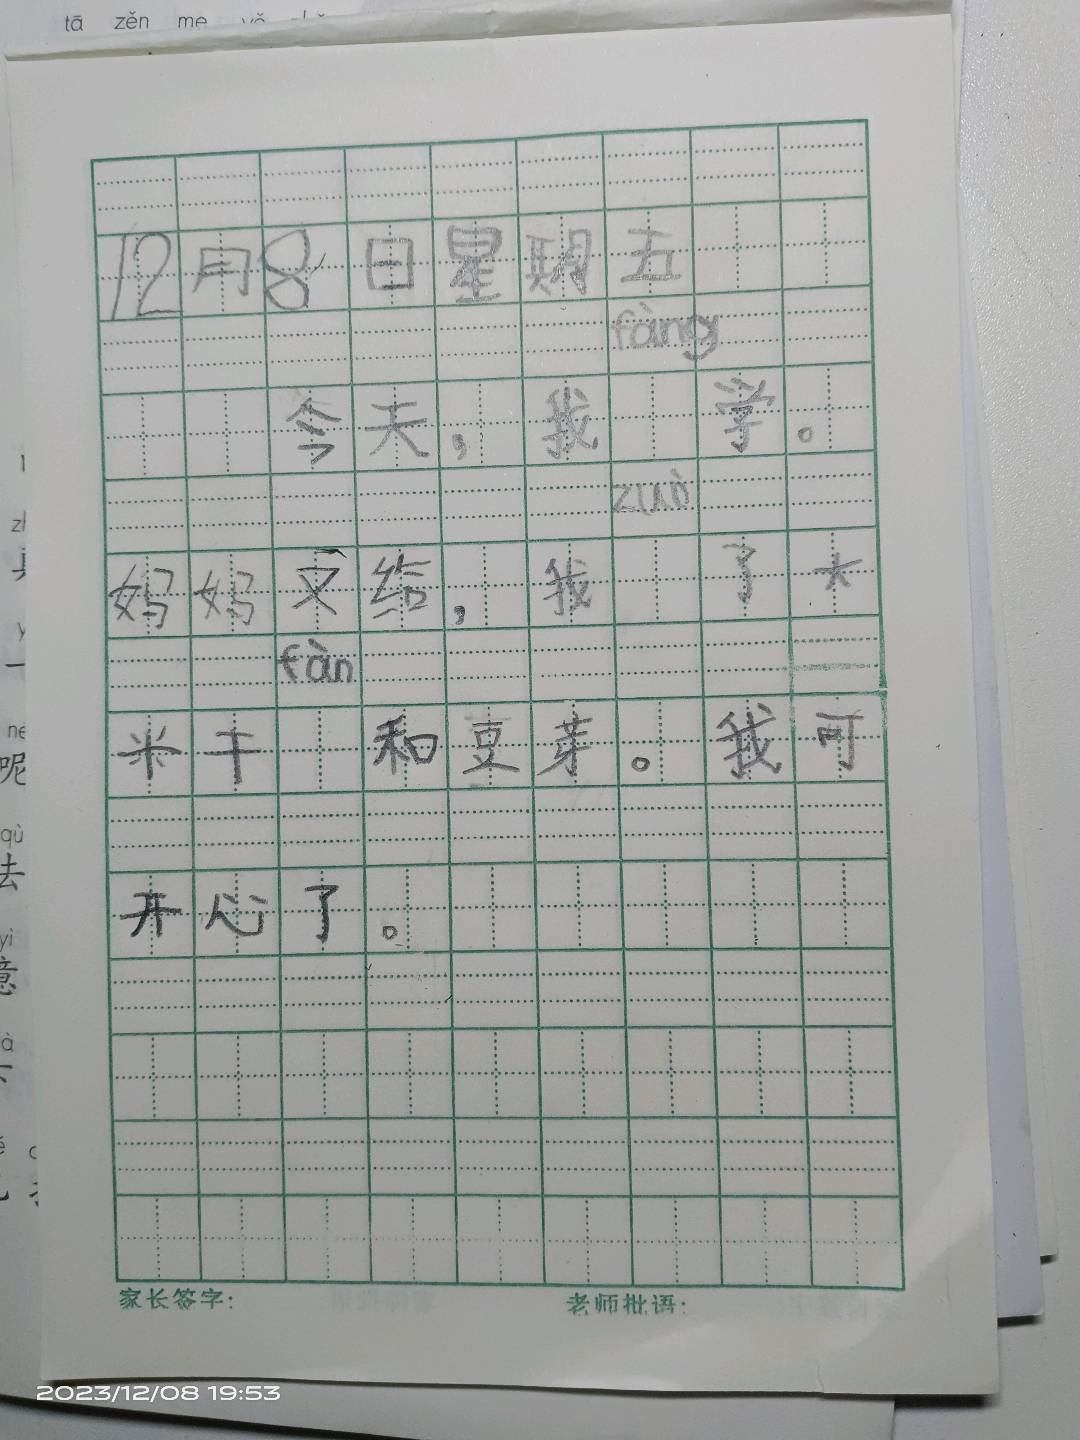 tā zěn me
12月8日星期五
fàng
今天，我 学。
zuò
妈妈又给，我 了大
fàn
米干 和豆芽。我可
开心了。
家长签字： 老师批语：
zh
y
一
ne
呢
qù
去
yì
意
à
2023/12/08 19:53